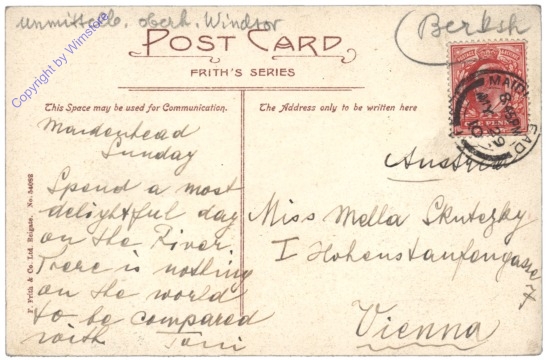 unmittelb. oberh. Windsor
(Berksh
POST CARD
FRITH'S SERIES
This Space may be used for Communication.
The Address only to be written here
Maidenhead
Sunday
Spend a most
delightful day
on the River.
There is nothing
on the world
to be compared
with Toni
Austria
Miss Mella Skutezky
I Hohenstaufengasse 7
Vienna
F. Frith & Co. Ltd. Reigate. No. 54092
MAIDENHEAD
MY 29
10
Copyright by Wimstore